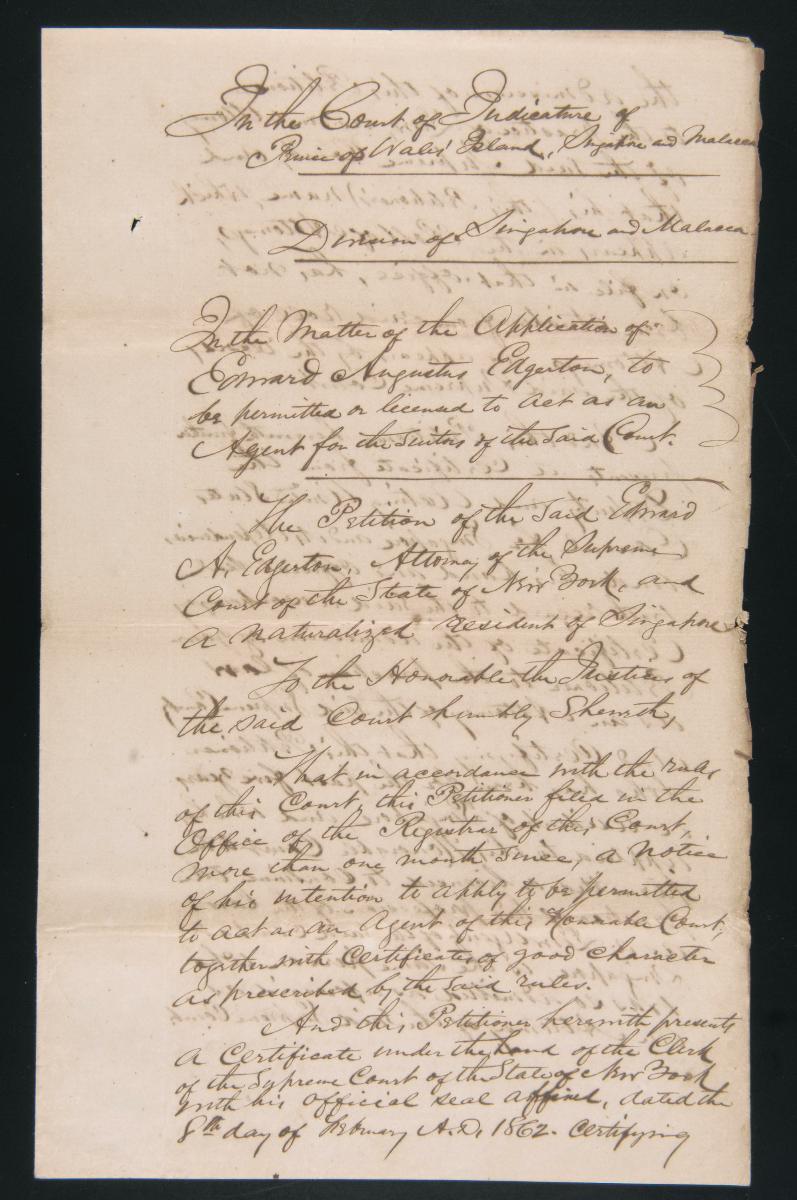 In the Court of Judicature of
Prince of Wales' Island, Singapore and Malacca
Division of Singapore and Malacca
In the Matter of the Application of
Edward Augustus Edgerton, to
be permitted or licensed to act as an
Agent for the Suitors of the said Court.
The Petition of the said Edward
A. Edgerton, Attorney of the Supreme
Court of the State of New York, and
a naturalized resident of Singapore
To the Honorable the Justices of
the said Court humbly Sheweth,
That in accordance with the rules
of this Court, this Petitioner filed in the
Office of the Registrar of this Court,
more than one month since, a notice
of his intention to apply to be permitted
to act as an Agent of this Honorable Court,
together with Certificates of good character
as prescribed by the said rules.
And this Petitioner herewith presents
a Certificate under the hand of the Clerk
of the Supreme Court of the State of New York
with his official seal affixed, dated the
8th day of February A.D. 1862. Certifying